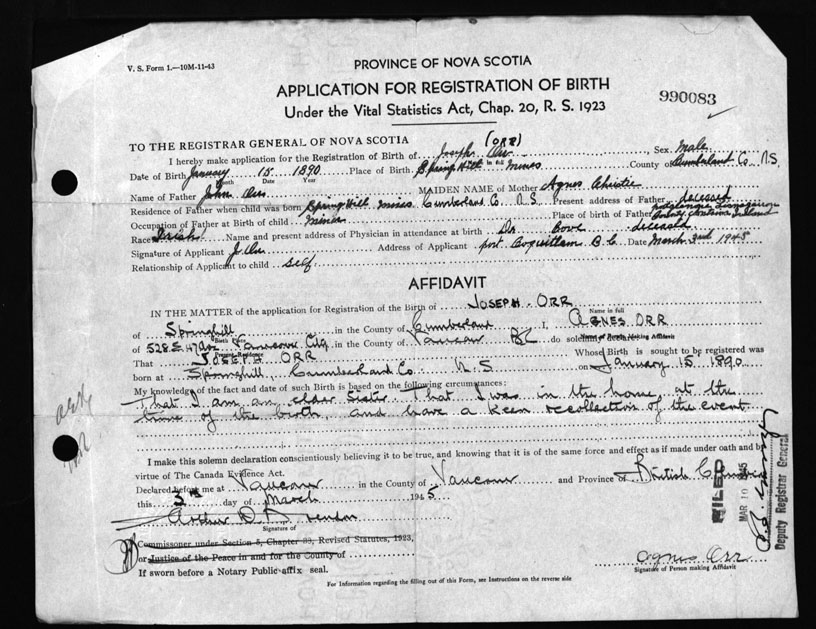 V. S. Form 1.—10M-11-43
PROVINCE OF NOVA SCOTIA
APPLICATION FOR REGISTRATION OF BIRTH
Under the Vital Statistics Act, Chap. 20, R. S. 1923
990083
TO THE REGISTRAR GENERAL OF NOVA SCOTIA
(ORR)
I hereby make application for the Registration of Birth of Joseph Orr Sex Male
Date of Birth January 15 1890 Place of Birth Spring Hill Mines County of Cumberland Co. N.S.
Month Date Year in full
Name of Father John Orr MAIDEN NAME of Mother Agnes Christie
Residence of Father when child was born Spring Hill Mines Cumberland C. N.S. Present address of Father deceased
Occupation of Father at Birth of child Miner Place of Birth of Father Ireland
Race Irish Name and present address of Physician in attendance at birth Dr deceased
Signature of Applicant J. Orr Address of Applicant port Coquitlam B.C. Date March 2nd 1945
Relationship of Applicant to child self
AFFIDAVIT
IN THE MATTER of the application for Registration of the Birth of JOSEPH ORR
Name in full
of Springhill in the County of Cumberland I, AGNES ORR
Birth Place
of 528 E 47 Ave Vancouver City in the County of Vancouver BC do solemnly declare:
Present Residence Name of Person Making Affidavit
That JOSEPH ORR Whose Birth is sought to be registered was
born at Springhill, Cumberland Co. N.S. on January 15 1890
My knowledge of the fact and date of such Birth is based on the following circumstances:
That I am an elder sister That I was in the home, at the
time of the birth, and have a keen recollection of the event
I make this solemn declaration conscientiously believing it to be true, and knowing that it is of the same force and effect as if made under oath and by
virtue of The Canada Evidence Act.
Declared before me at Vancouver in the County of Vancouver and Province of British Columbia
this 5th day of March 1945
Arthur D.
Signature of
Commissioner under Section 5, Chapter 39, Revised Statutes, 1923,
or Justice of the Peace in and for the County of
If sworn before a Notary Public affix seal.
Agnes Orr
Signature of Person making Affidavit
For Information regarding the filling out of this Form, see Instructions on the reverse side
FILED
MAR 10 1945
Deputy Registrar General